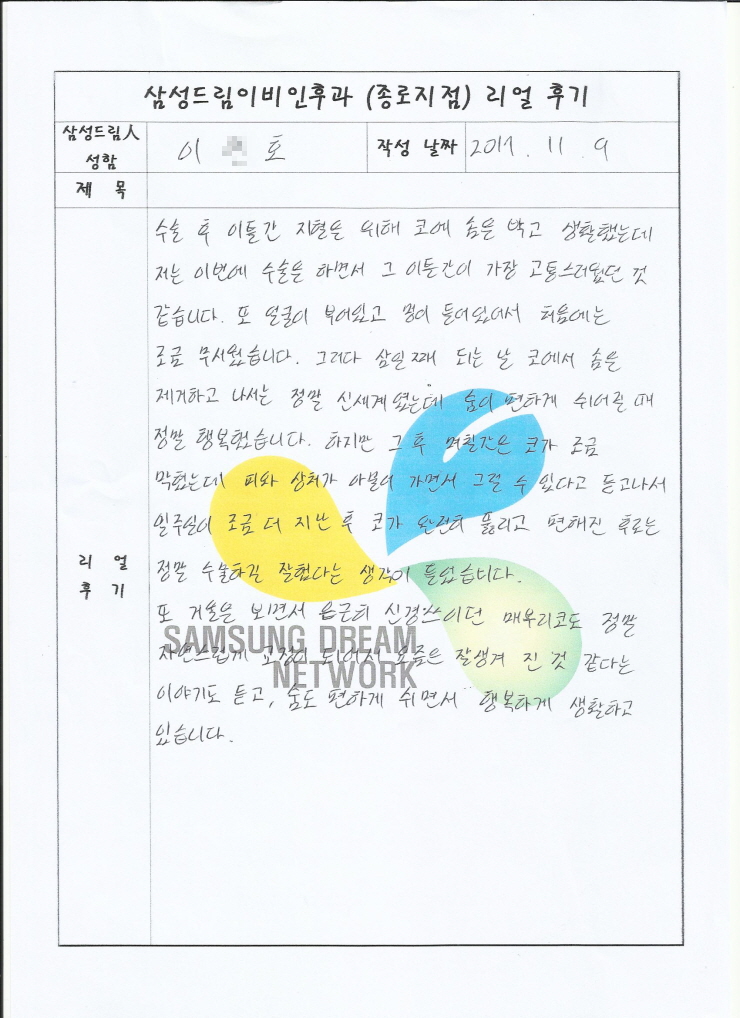 삼성드림이비인후과 (종로지점) 리얼 후기
삼성드림人 성함
이 호
작성 날짜
2011. 11. 9
제 목
리 얼 후 기
수술 후 이틀간 지혈을 위해 코에 솜을 박고 생활했는데
저는 이번에 수술을 하면서 그 이틀간이 가장 고통스러웠던 것
같습니다. 또 얼굴이 부어있고 멍이 들어있어서 처음에는
조금 무서웠습니다. 그러다 삼일째 되는 날 코에서 솜을
제거하고 나서는 정말 신세계였는데 숨이 편하게 쉬어질 때
정말 행복했습니다. 하지만 그 후 며칠간은 코가 조금
막혔는데 피와 상처가 아물어 가면서 그럴 수 있다고 듣고나서
일주일이 조금 더 지난 후 코가 완전히 뚫리고 편해진 후로는
정말 수술하길 잘했다는 생각이 들었습니다.
또 거울을 보면서 은근히 신경쓰이던 매부리코도 정말
자연스럽게 교정이 되어서 요즘은 잘생겨 진 것 같다는
이야기도 듣고, 숨도 편하게 쉬면서 행복하게 생활하고
있습니다.
SAMSUNG DREAM
NETWORK